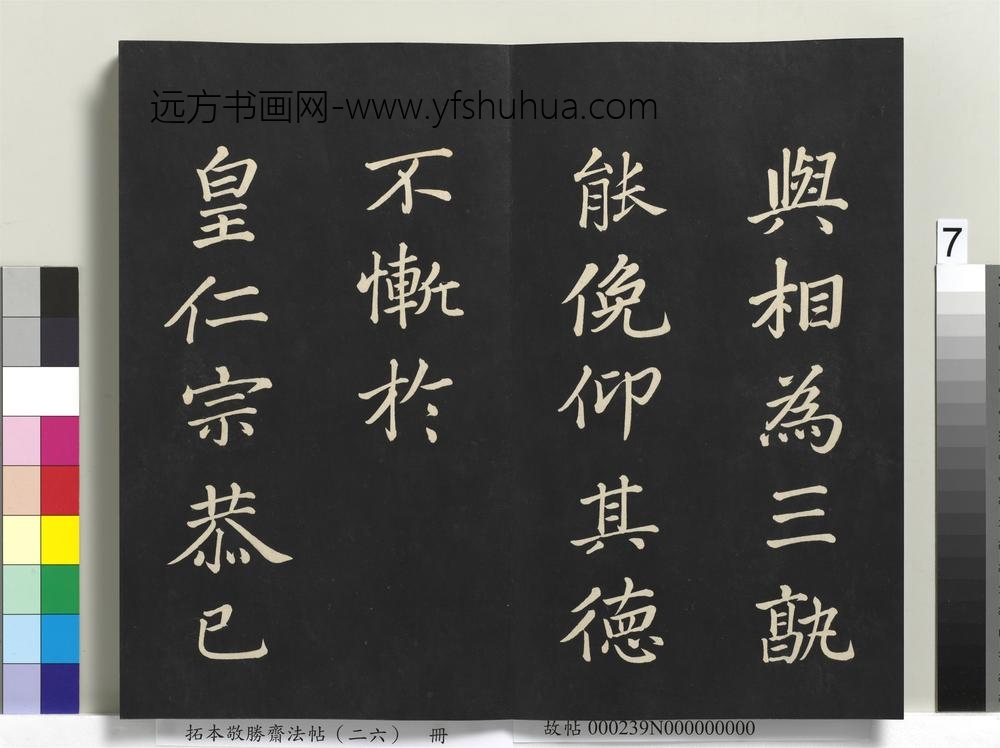 远方书画网-www.yfshuhua.com
與相為三孰
能俛仰其德
不慚於
皇仁宗恭已
7
拓本敬勝齋法帖（二六） 冊
故帖 000239N000000000